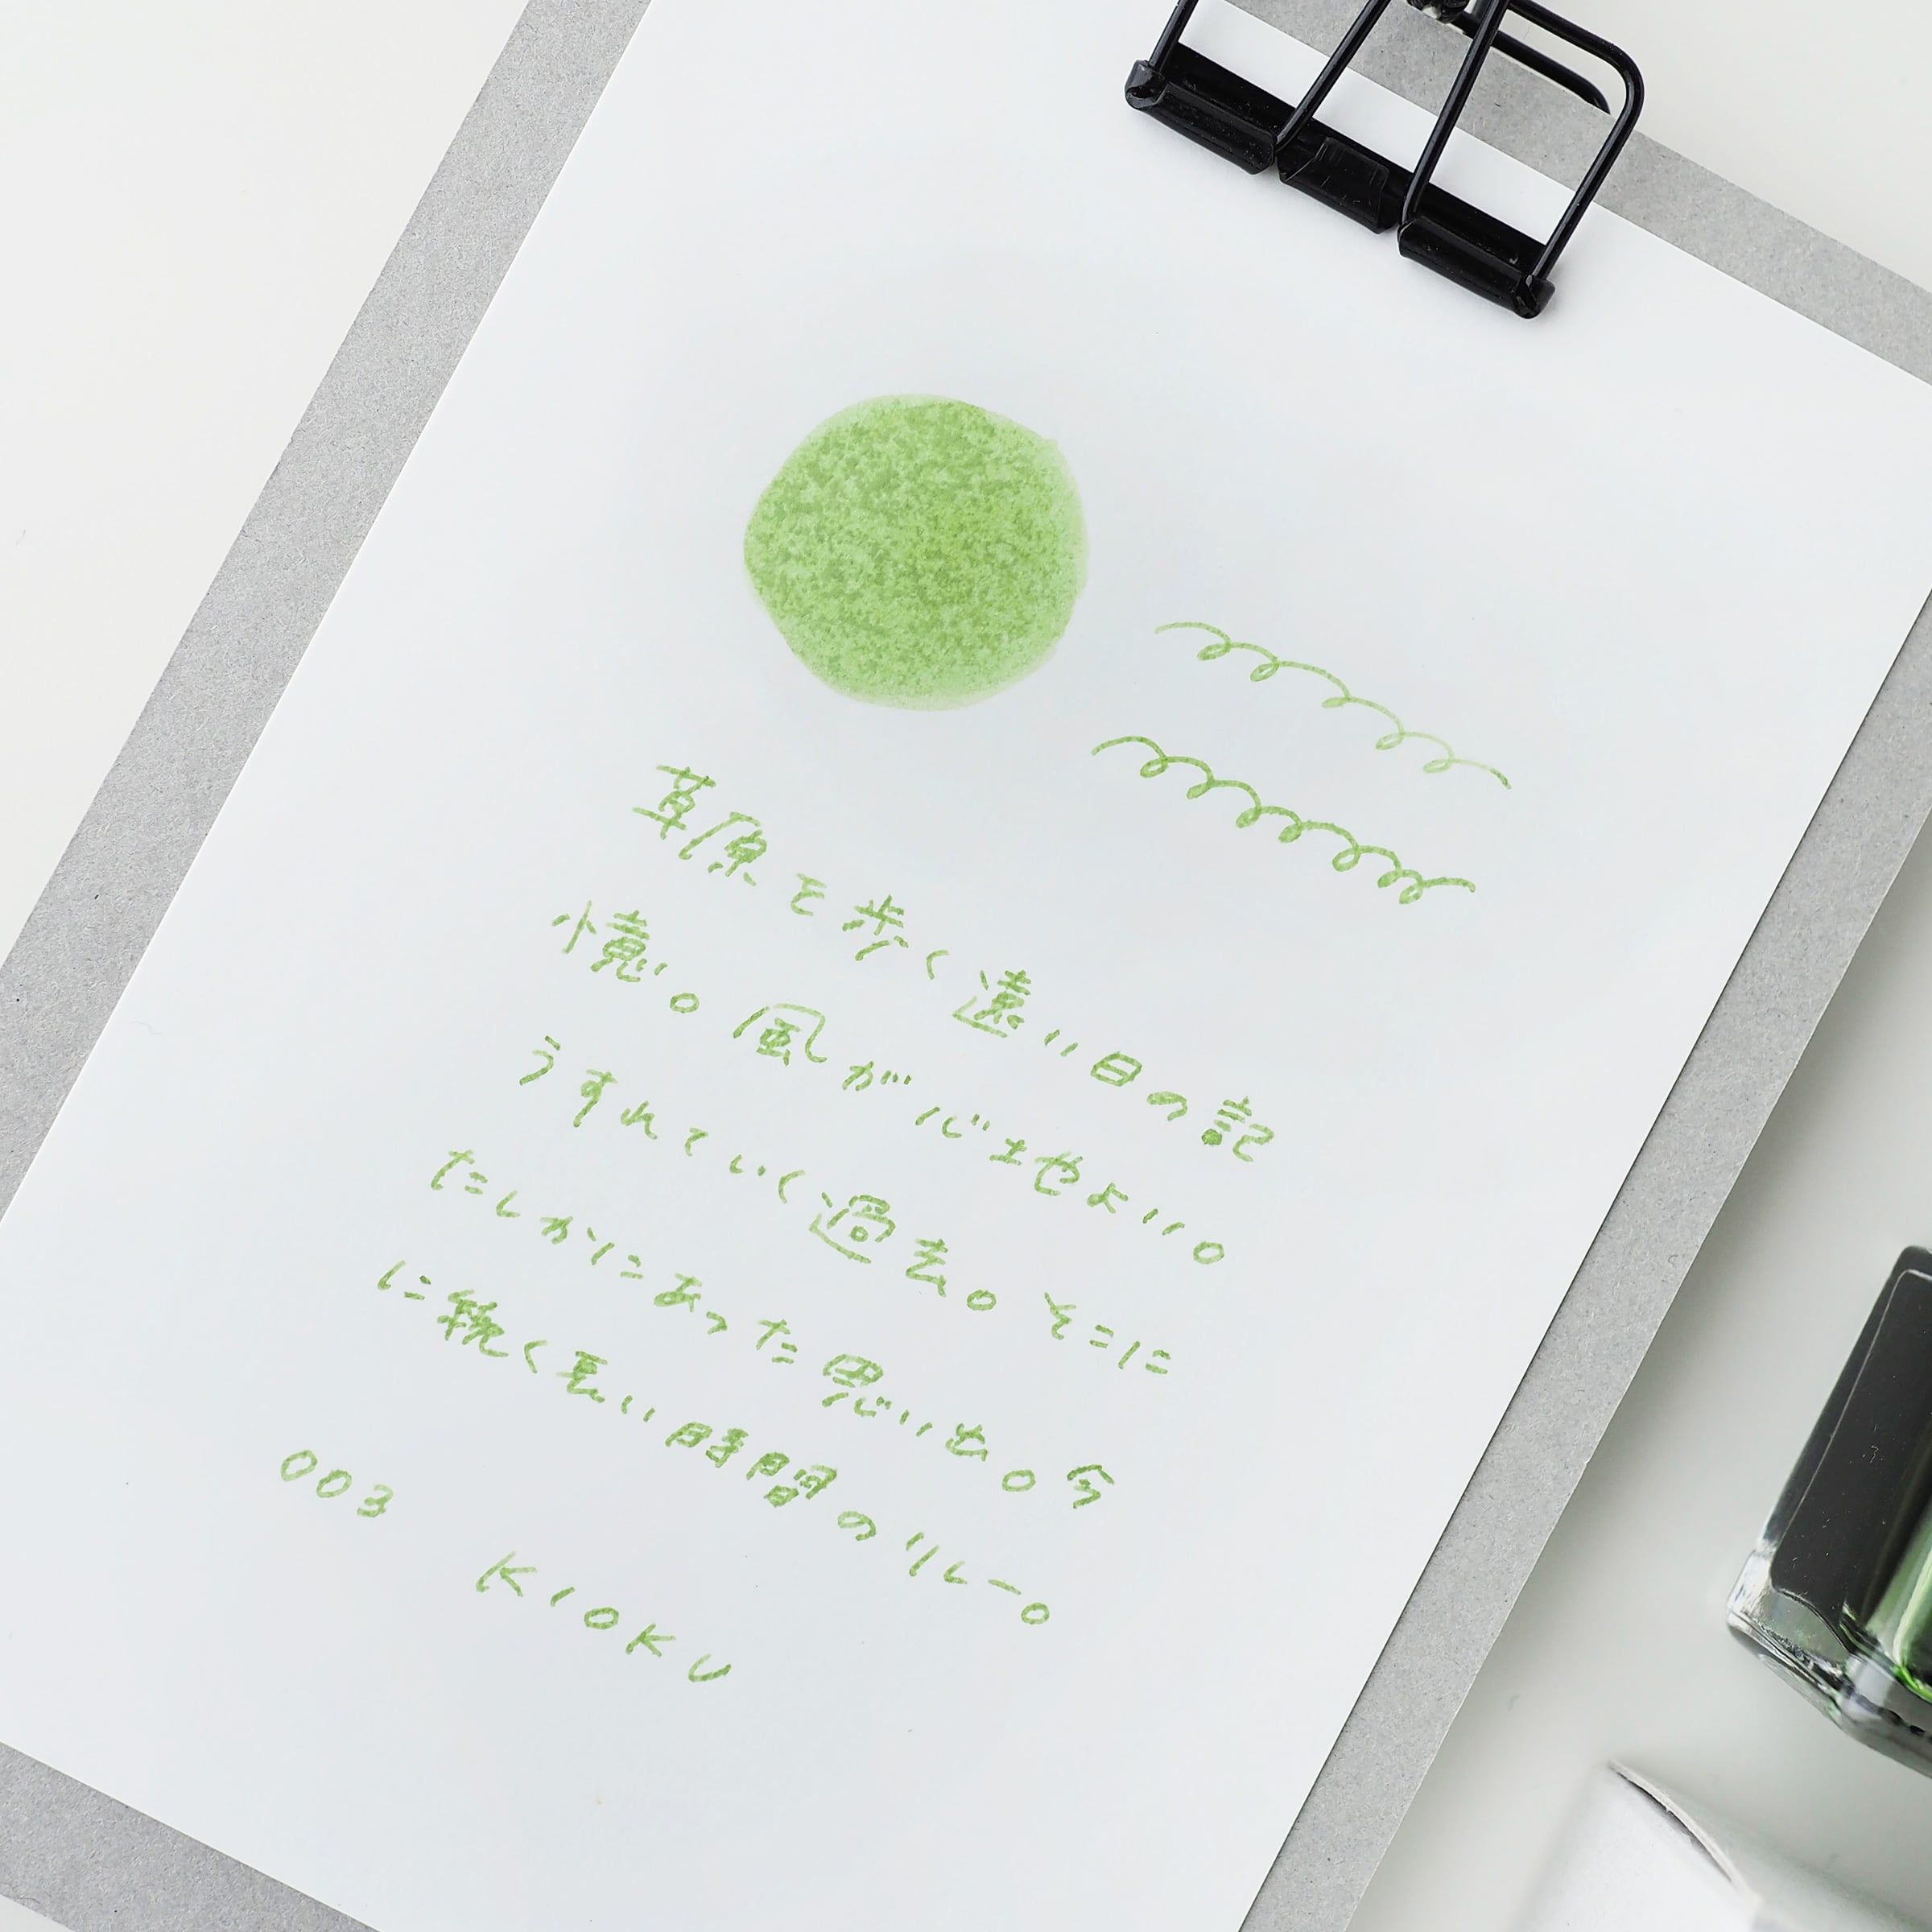 草原を歩く遠い日の記
憶。風が心地よい。
うすれていく過去。そこに
たしかにあった思い出。今
に続く長い時間のリレー。
003 KIOKU